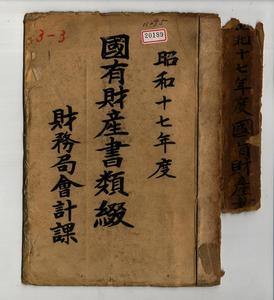 3-3
20189
昭和十七年度
國有財産書類綴
財務局會計課
十七年度國有財産書